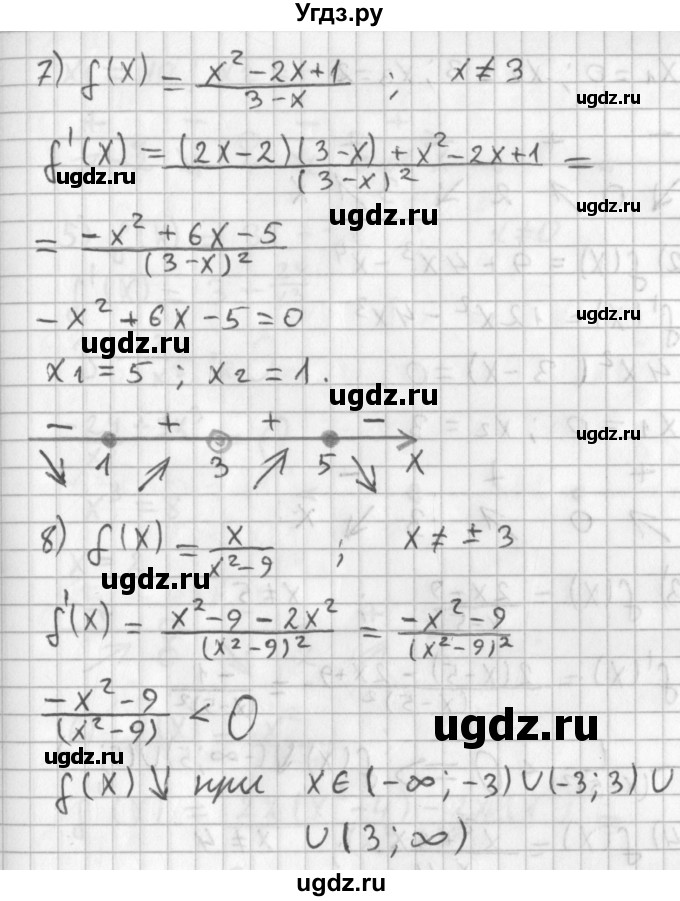 Угдз.ру
7) f(x) = (x² - 2x + 1)/(3 - x) ; x ≠ 3
ugdz.ru
f'(x) = ((2x - 2)(3 - x) + x² - 2x + 1)/(3 - x)² =
ugdz.ru
ugdz.ru
ugdz.ru
= (-x² + 6x - 5)/(3 - x)²
-x² + 6x - 5 = 0
ugdz.ru
ugdz.ru
x1 = 5 ; x2 = 1.
ugdz.ru
- + + -
↘ 1 ↗ 3 ↗ 5 ↘ x
8) f(x) = x/(x² - 9) ; x ≠ ± 3
ugdz.ru
ugdz.ru
f'(x) = (x² - 9 - 2x²)/(x² - 9)² = (-x² - 9)/(x² - 9)²
(-x² - 9)/(x² - 9) < 0
ugdz.ru
ugdz.ru
f(x) ↓ при x ∈ (-∞; -3) ∪ (-3; 3) ∪
∪ (3; ∞)
ugdz.ru